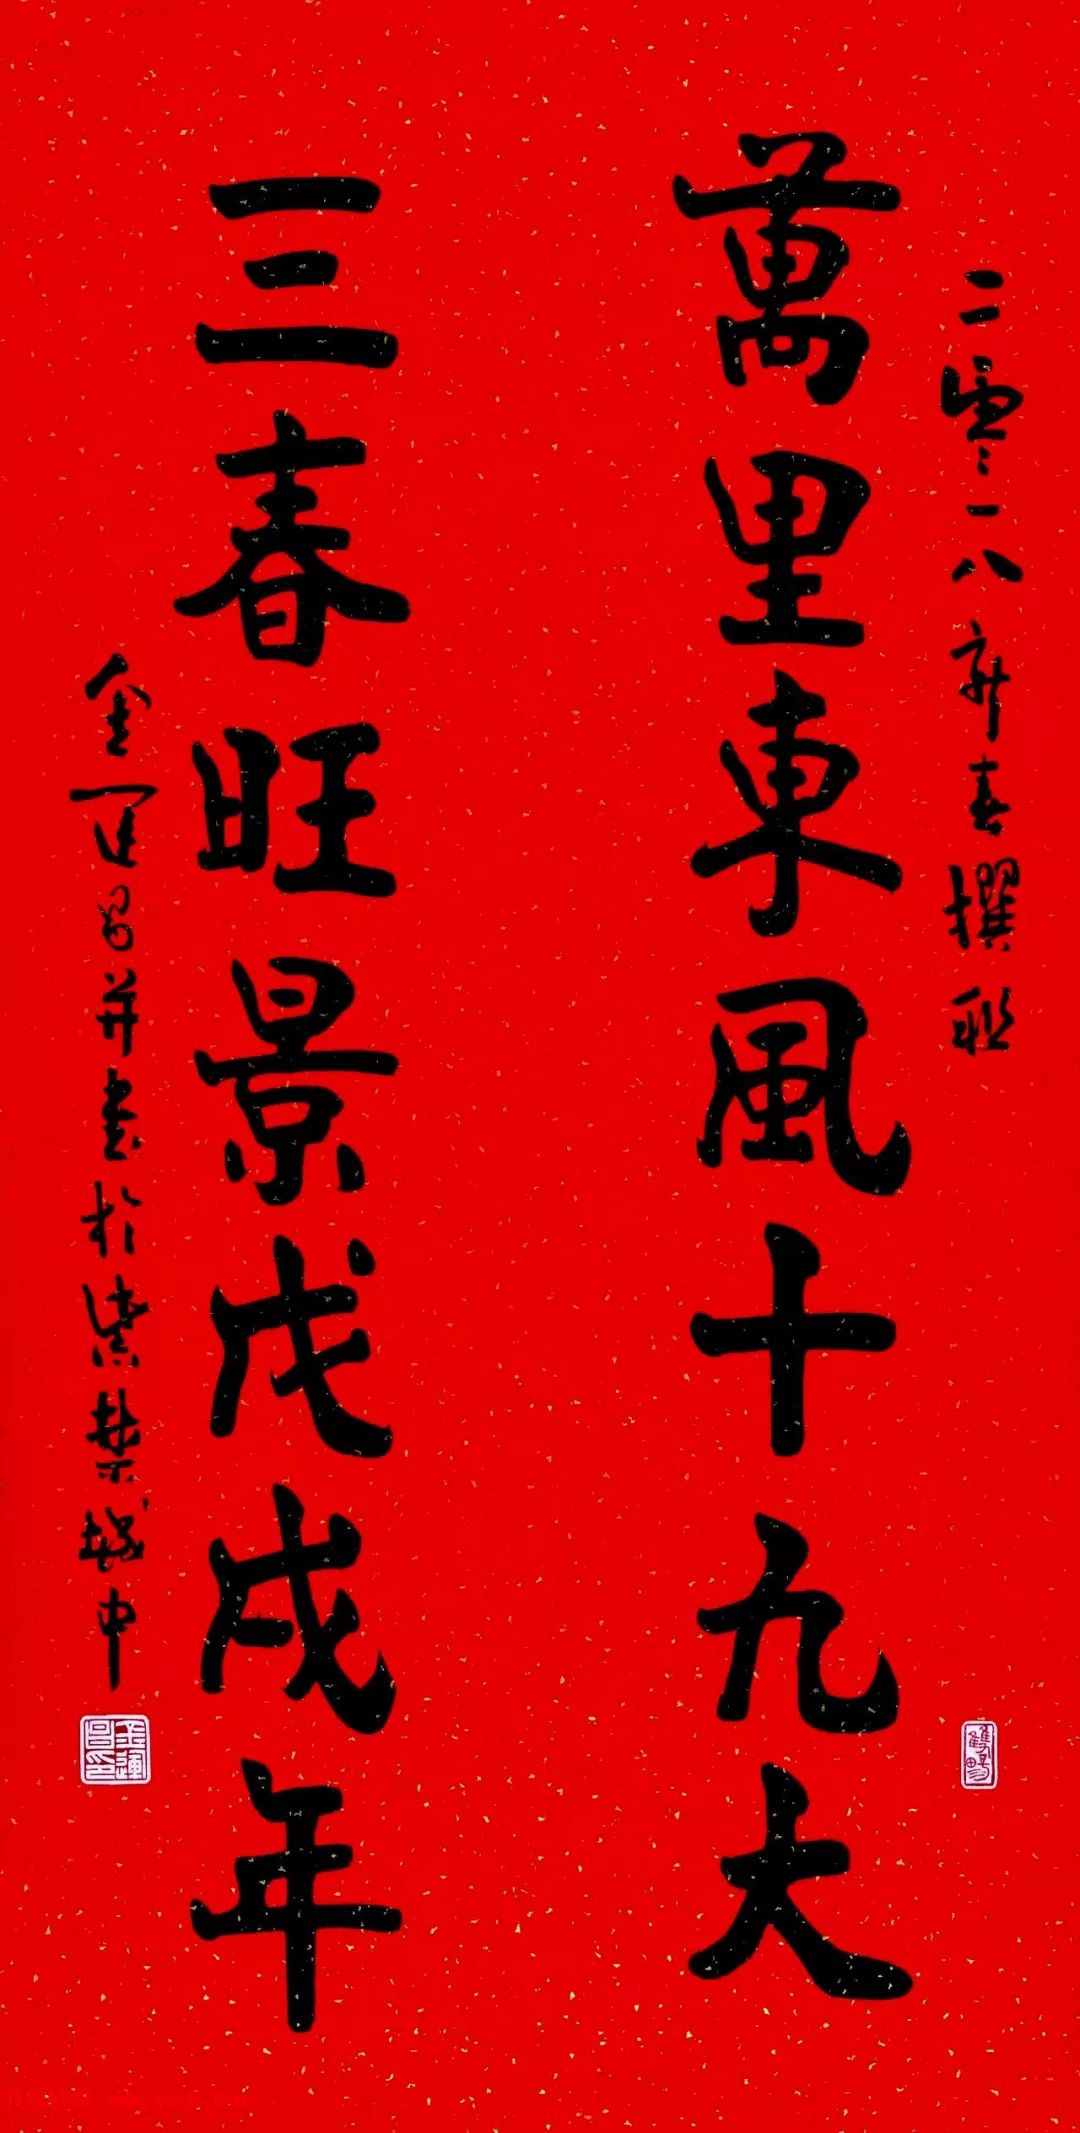 二零一八年春撰联
萬里東風十九大
三春旺景戊戌年
金運昌并書於紫禁城中
雙暢
金運昌印